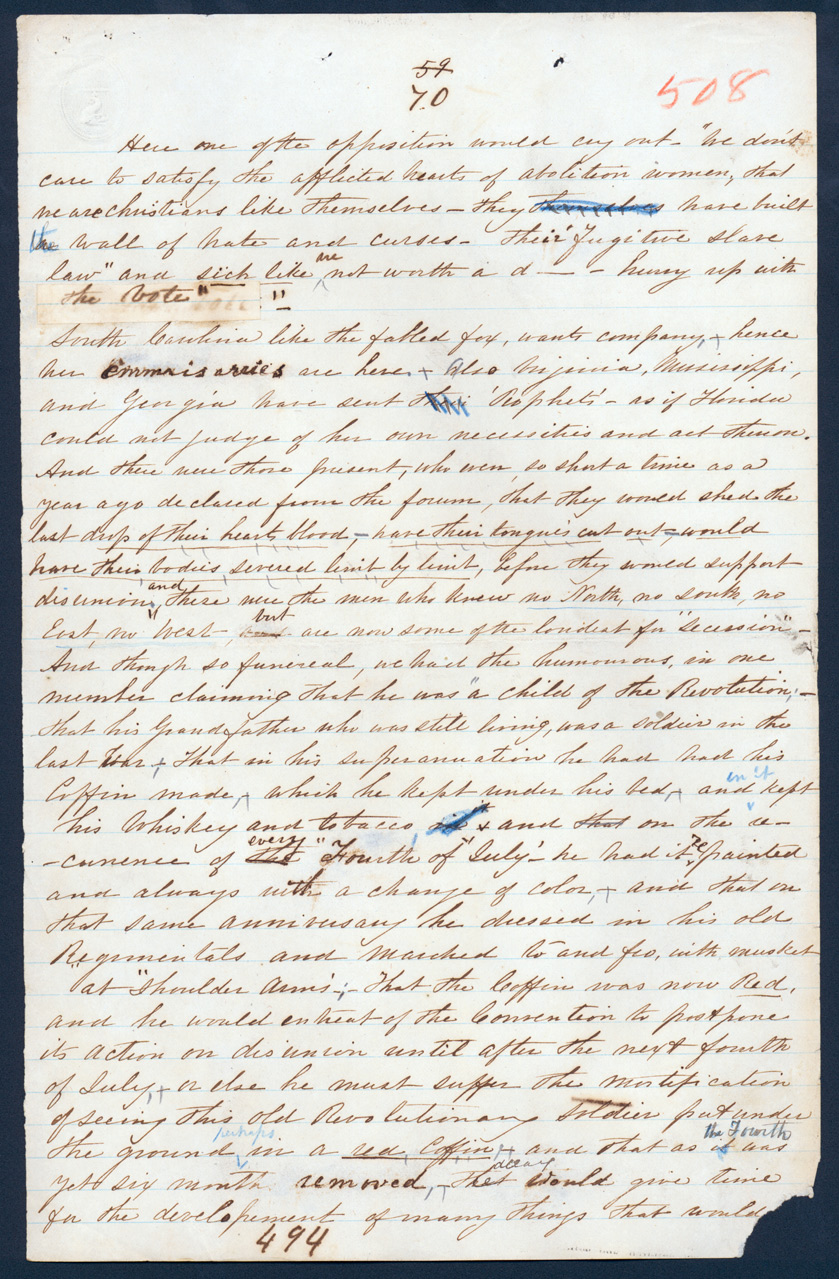 59
70
508
Here one of the opposition would cry out - "We don't
care to satisfy the afflicted hearts of abolition women, that
we are christians like themselves - they themselves have built
the wall of hate and curses - Their "fugitive slave
law" and sich like we not worth a d—— - hurry up with
the vote" "
South Carolina like the fabled fox, wants company, + hence
her emmisarries are here + also Virginia, Mississippi,
and Georgia have sent their 'Prophets' - as if Florida
could not judge of her own necessities and act thereon.
And there were those present, who even, so short a time as a
year ago declared from the forum, that they would shed the
last drop of their hearts blood, - have their tongues cut out - would
have their bodies severed limb by limb, before they would support
disunion, and these were the men who knew no North, no south, no
East, no West -, but are now some of the loudest for "Secession" -
And though so funereal, we had the humourous, in one
member claiming that he was "a child of the Revolution, -
that his Grandfather who was still living, was a soldier in the
last War, + That in his superanuation he had had his
Coffin made, + which he kept under his bed, + and in it kept
his Whiskey and tobacco, + and that on the re-
-currence of the every "Fourth of July" - he had it re painted
and always with a change of color, + and that on
that same anniversary he dressed in his old
Regimentals and marched to and fro, with musket
"at "Shoulder Arms"; - That the Coffin was now Red,
and he would entreat of the Convention to postpone
its action on disunion until after the next fourth
of July, + or else he must suffer the mortification
of seeing this old Revolutionary Soldier put under
the ground perhaps in a red, Coffin, + and that as it the Fourth was
yet six month removed, - that delay would give time
for the developement of many things that would
494